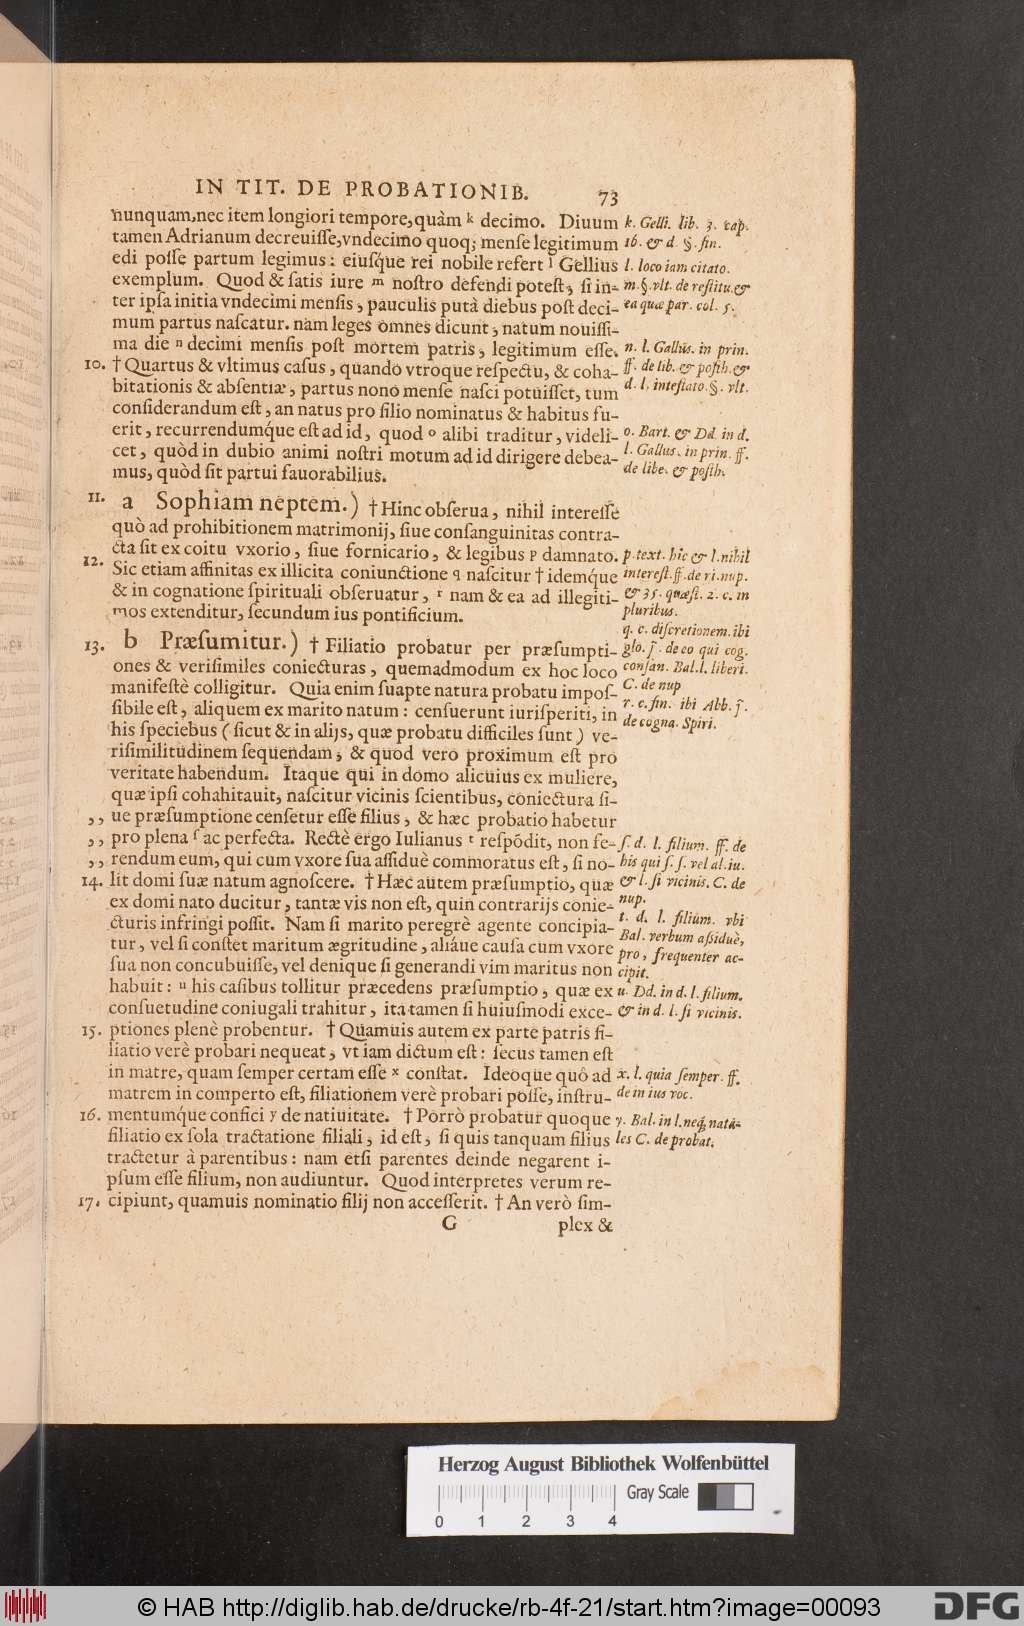 IN TIT. DE PROBATIONIB. 73
nunquam, nec item longiori tempore, quàm k decimo. Diuum
tamen Adrianum decreuiſſe, vndecimo quoq; menſe legitimum
edi poſſe partum legimus: eiuſq́ue rei nobile refert l Gellius
exemplum. Quod & ſatis iure m noſtro defendi poteſt, ſi in-
ter ipſa initia vndecimi menſis, pauculis putà diebus poſt deci-
mum partus naſcatur. nam leges omnes dicunt, natum nouiſſi-
ma die n decimi menſis poſt mortem patris, legitimum eſſe.
10. † Quartus & vltimus caſus, quando vtroque reſpectu, & coha-
bitationis & abſentiæ, partus nono menſe naſci potuiſſet, tum
conſiderandum eſt, an natus pro filio nominatus & habitus fu-
erit, recurrendumq́ue eſt ad id, quod o alibi traditur, videli-
cet, quòd in dubio animi noſtri motum ad id dirigere debea-
mus, quòd ſit partui fauorabilius.
11. a Sophiam neptem.) † Hinc obſerua, nihil intereſſe
quò ad prohibitionem matrimonij, ſiue conſanguinitas contra-
cta ſit ex coitu vxorio, ſiue fornicario, & legibus p damnato.
12. Sic etiam affinitas ex illicita coniunctione q naſcitur † idemq́ue
& in cognatione ſpirituali obſeruatur, r nam & ea ad illegiti-
mos extenditur, ſecundum ius pontificium.
13. b Præſumitur.) † Filiatio probatur per præſumpti-
ones & veriſimiles coniecturas, quemadmodum ex hoc loco
manifeſtè colligitur. Quia enim ſuapte natura probatu impoſ-
ſibile eſt, aliquem ex marito natum: cenſuerunt iuriſperiti, in
his ſpeciebus (ſicut & in alijs, quæ probatu difficiles ſunt) ve-
riſimilitudinem ſequendam, & quod vero proximum eſt pro
veritate habendum. Itaque qui in domo alicuius ex muliere,
quæ ipſi cohahitauit, naſcitur vicinis ſcientibus, coniectura ſi-
,, ue præſumptione cenſetur eſſe filius, & hæc probatio habetur
,, pro plena ſ ac perfecta. Rectè ergo Iulianus t reſpõdit, non fe-
,, rendum eum, qui cum vxore ſua aſſiduè commoratus eſt, ſi no-
14. lit domi ſuæ natum agnoſcere. † Hæc autem præſumptio, quæ
ex domi nato ducitur, tantæ vis non eſt, quin contrarijs conie-
cturis infringi poſſit. Nam ſi marito peregrè agente concipia-
tur, vel ſi conſtet maritum ægritudine, aliáue cauſa cum vxore
ſua non concubuiſſe, vel denique ſi generandi vim maritus non
habuit: u his caſibus tollitur præcedens præſumptio, quæ ex
conſuetudine coniugali trahitur, ita tamen ſi huiuſmodi exce-
15. ptiones plenè probentur. † Quamuis autem ex parte patris fi-
liatio verè probari nequeat, vt iam dictum eſt: ſecus tamen eſt
in matre, quam ſemper certam eſſe x conſtat. Ideoque quô ad
matrem in comperto eſt, filiationem verè probari poſſe, inſtru-
16. mentumq́ue confici y de natiuitate. † Porrò probatur quoque
filiatio ex ſola tractatione filiali, id eſt, ſi quis tanquam filius
tractetur à parentibus: nam etſi parentes deinde negarent i-
pſum eſſe filium, non audiuntur. Quod interpretes verum re-
17. cipiunt, quamuis nominatio filij non acceſſerit. † An verò ſim-
G plex &
k. Gelli. lib. 3. cap.
16. & d. §. fin.
l. loco iam citato.
m. §. vlt. de reſtitu. &
ea quæ par. col. 5.
n. l. Gallus. in prin.
ff. de lib. & poſth. &
d. l. inteſtato. §. vlt.
o. Bart. & Dd. in d.
l. Gallus. in prin. ff.
de libe. & poſth.
p. text. hîc & l. nihil
intereſt. ff. de ri. nup.
& 35. quæſt. 2. c. in
pluribus.
q. c. diſcretionem. ibi
glo. j. de eo qui cog.
conſan. Bal. l. liberi.
C. de nup
r. c. fin. ibi Abb. j.
de cogna. Spiri.
ſ. d. l. filium. ff. de
his qui ſ. ſ. vel al. iu.
& l. ſi vicinis. C. de
nup.
t. d. l. filium. vbi
Bal. verbum aſsiduè,
pro, frequenter ac-
cipit.
u. Dd. in d. l. filium.
& in d. l. ſi vicinis.
x. l. quia ſemper. ff.
de in ius voc.
y. Bal. in l. neq; nata-
les C. de probat.
Herzog August Bibliothek Wolfenbüttel
Gray Scale
0 1 2 3 4
© HAB http://diglib.hab.de/drucke/rb-4f-21/start.htm?image=00093
DFG